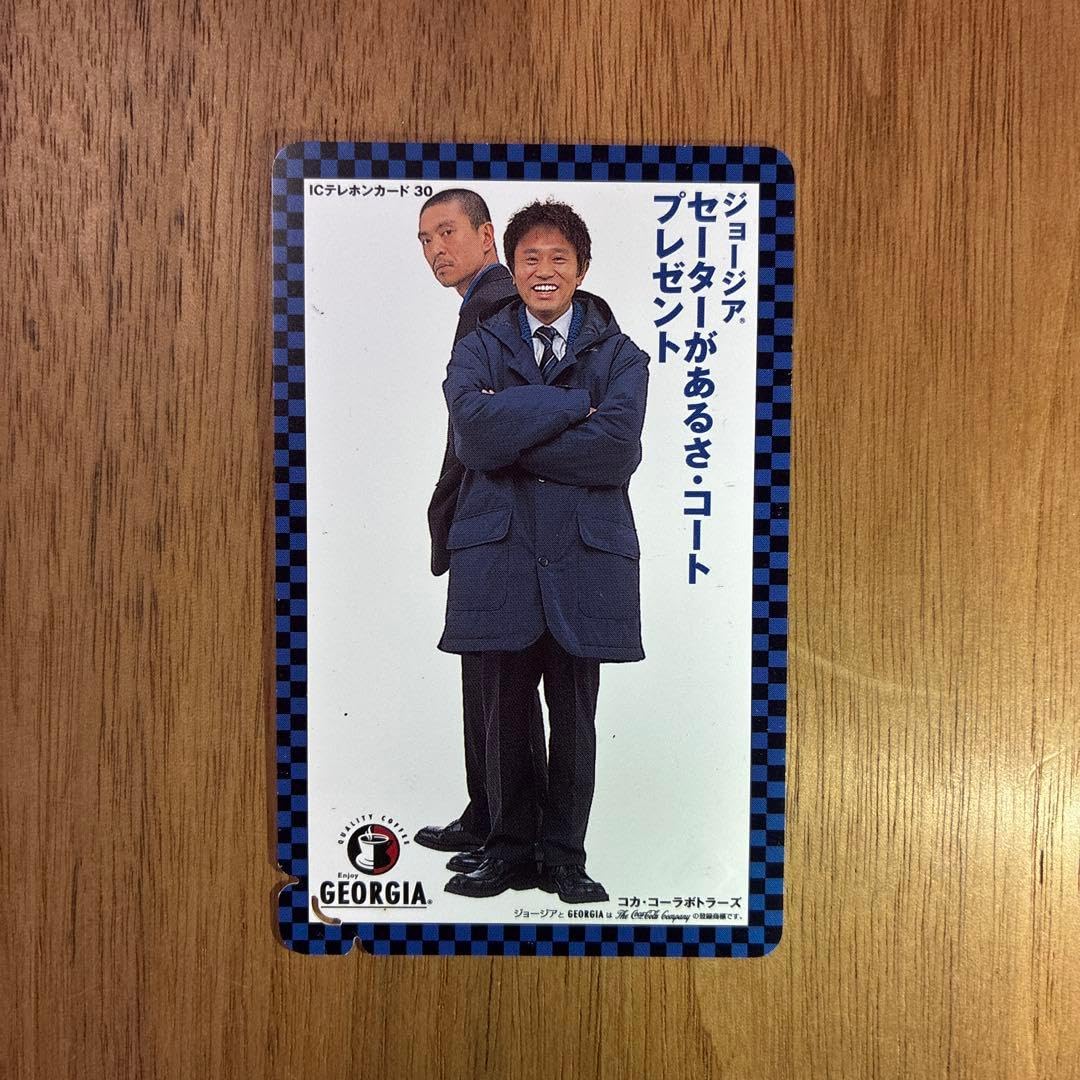 ICテレホンカード 30
ジョージア®
セーターがあるさ・コート
プレゼント
QUALITY COFFEE
Enjoy
GEORGIA®
コカ・コーラボトラーズ
ジョージアと GEORGIA は The Coca-Cola Company の登録商標です。